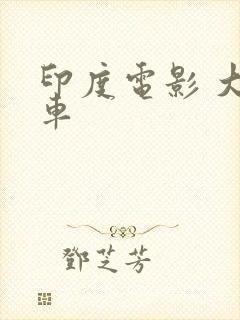 印度電影 大
車
鄧芝芳